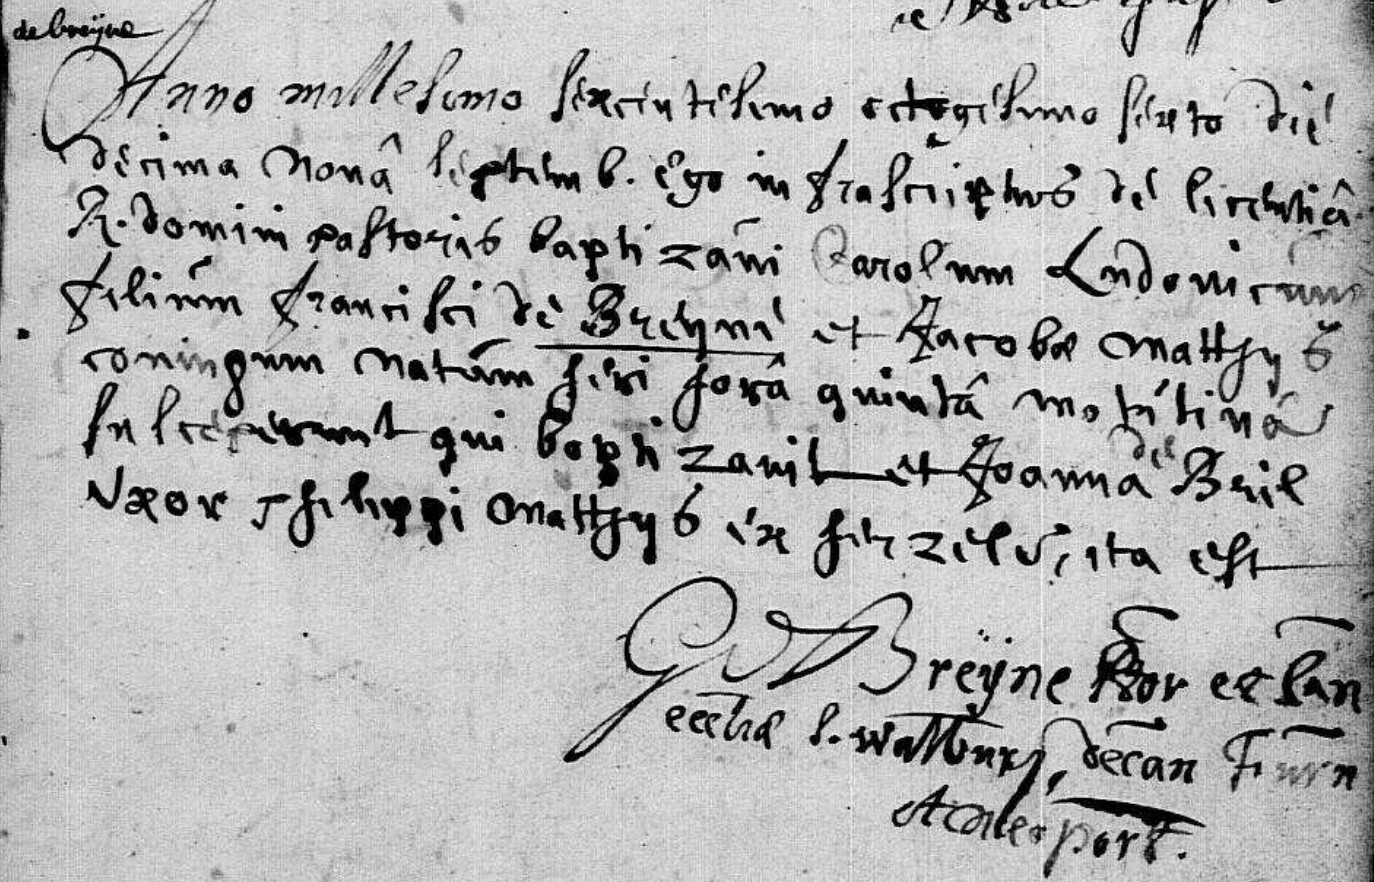 de breÿne
Anno millesimo sexcentesimo octogesimo sexto die
decima nonâ septemb. ego infrascriptus de licentiâ
R. domini pastoris baptizavi Carolum Ludovicum
filium francisci de Breyne et Jacobæ Matthys
coningum natum heri horâ quintâ matutinâ
susceperunt qui baptizavit et Joanna de Bril
uxor Philippi Matthys ex herzele, ita est
G D Breÿne Pbr et Can
eccliæ s. Walburg, decan Furn
et